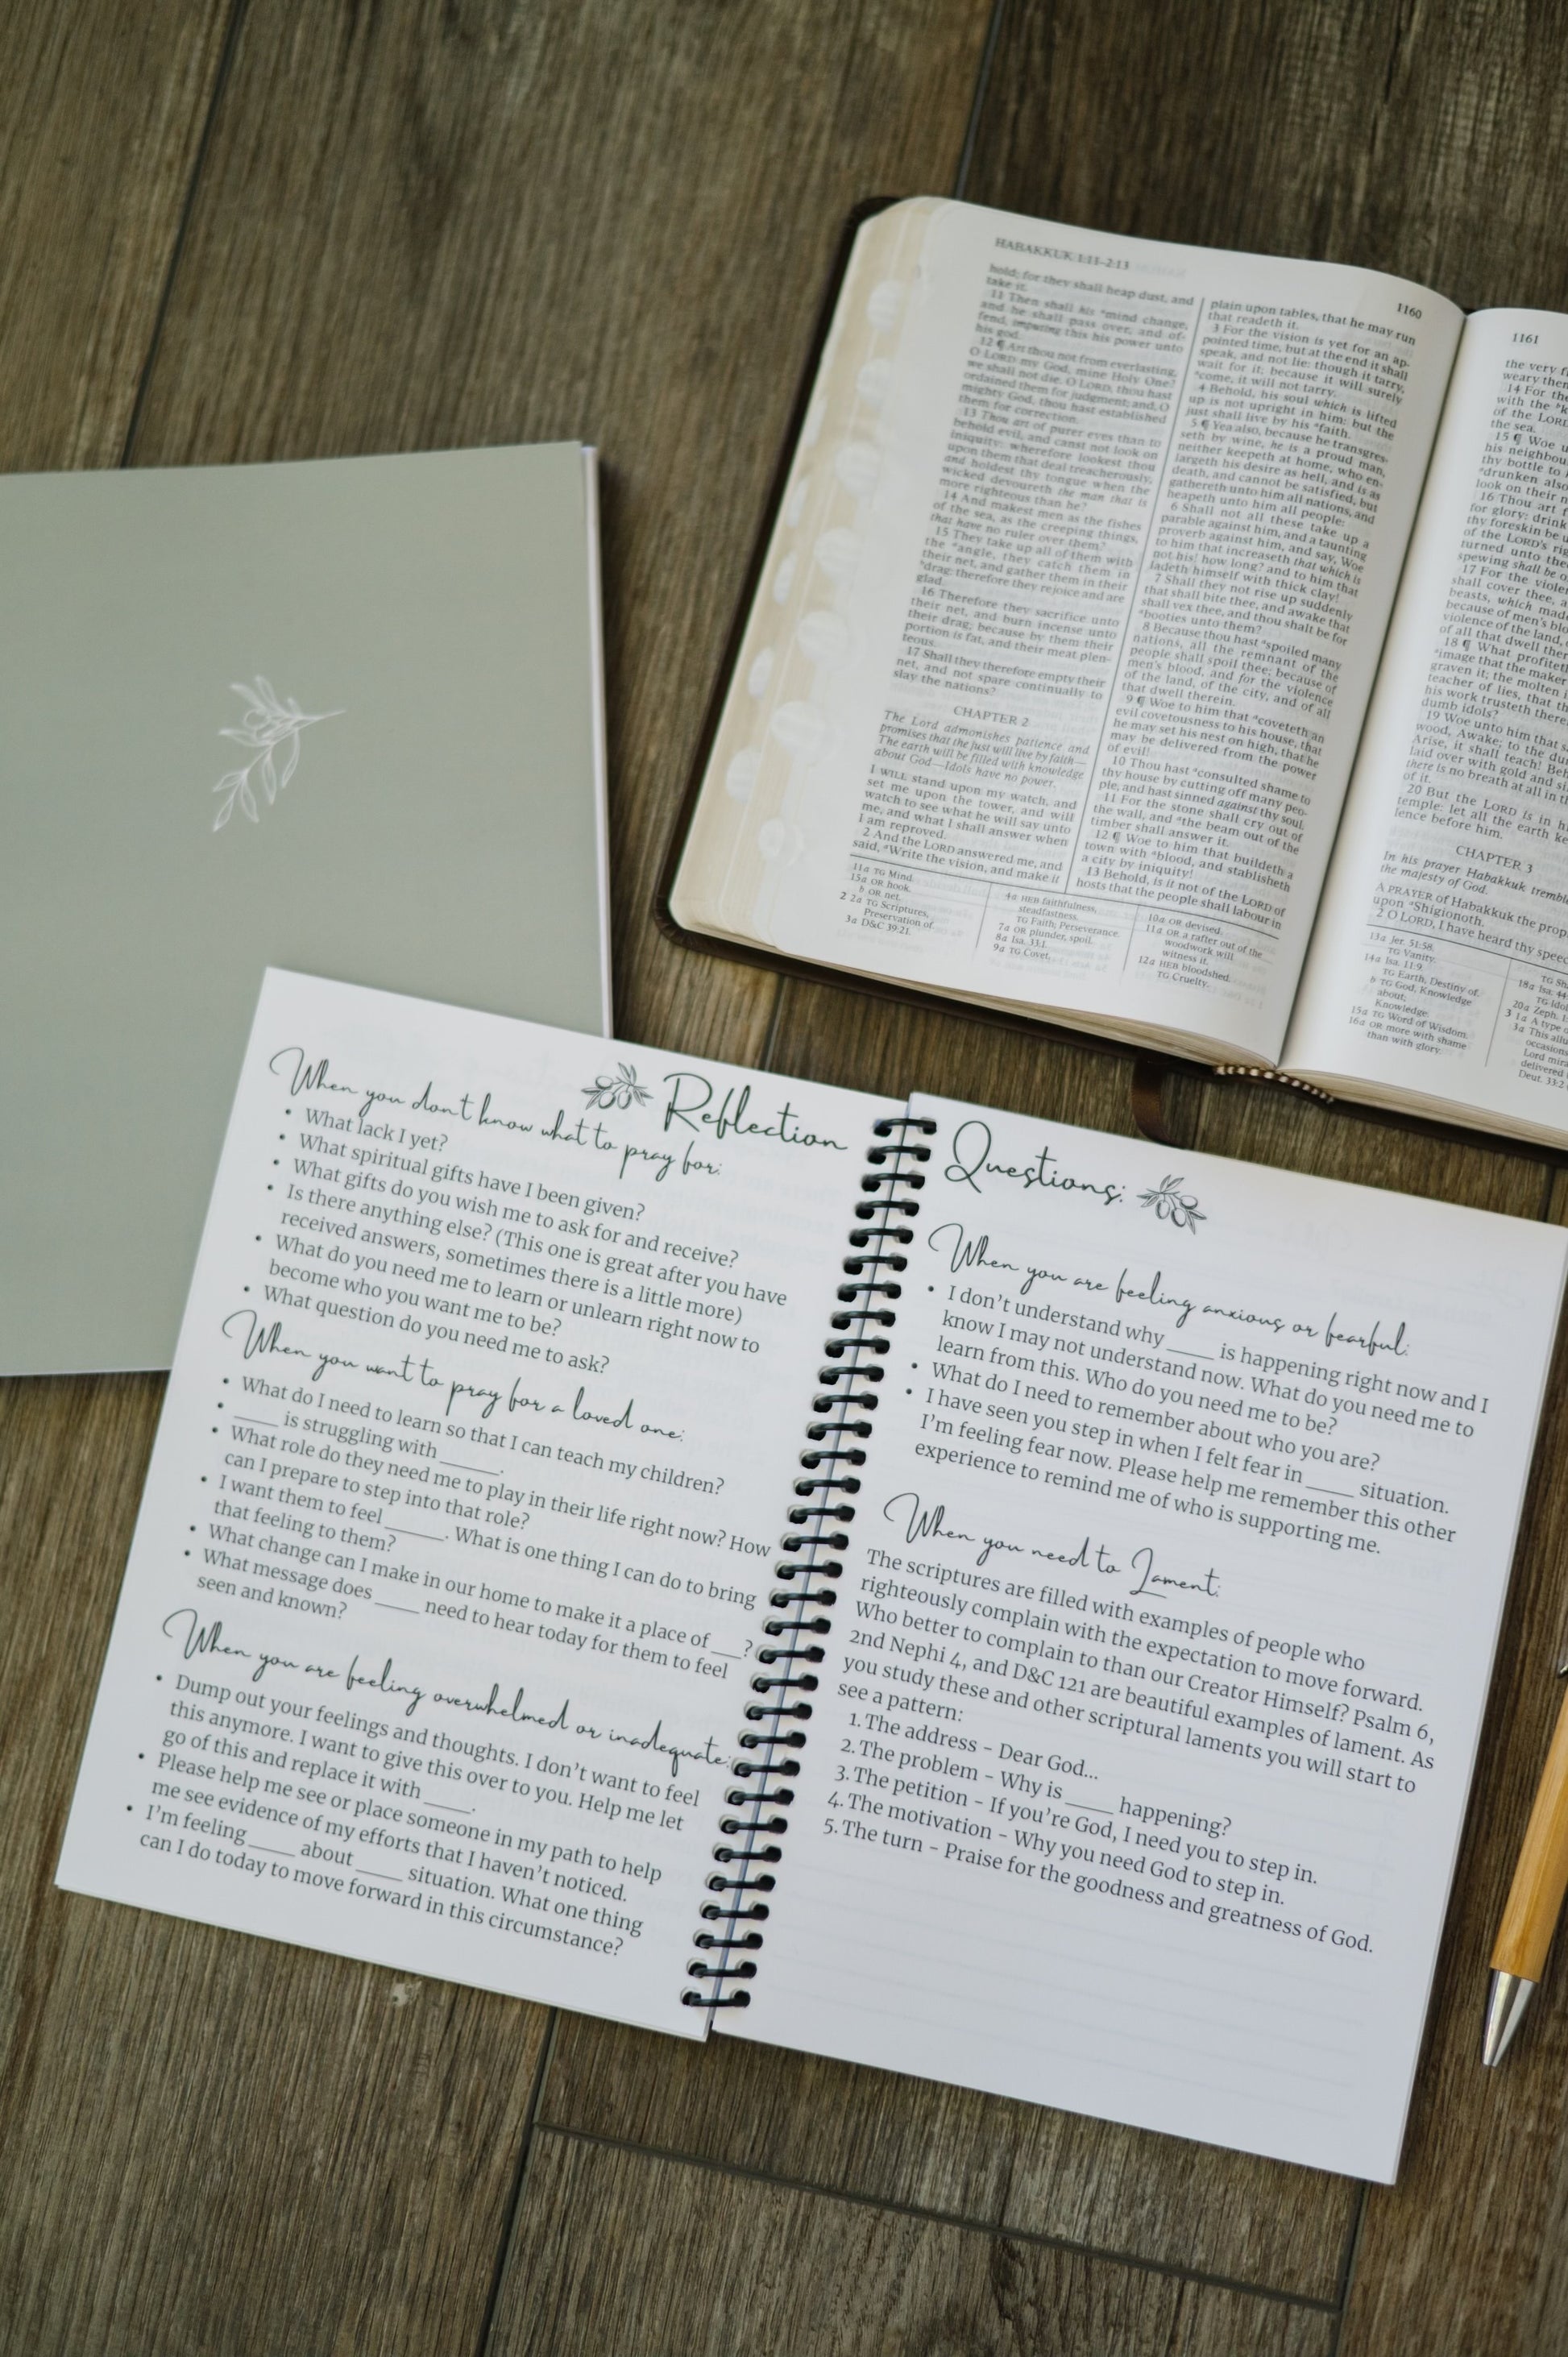 HABAKKUK 1:11–2:13
1160
hold; for they shall heap dust, and
take it.
11 Then shall his ᵃmind change,
and he shall pass over, and of-
fend, imputing this his power unto
his god.
12 ¶ Art thou not from everlasting,
O LORD my God, mine Holy One?
we shall not die. O LORD, thou hast
ordained them for judgment; and, O
mighty God, thou hast established
them for correction.
13 Thou art of purer eyes than to
behold evil, and canst not look on
iniquity: wherefore lookest thou
upon them that deal treacherously,
and holdest thy tongue when the
wicked devoureth the man that is
more righteous than he?
14 And makest men as the fishes
of the sea, as the creeping things,
that have no ruler over them?
15 They take up all of them with
the ᵃangle, they catch them in
their net, and gather them in their
ᵇdrag: therefore they rejoice and are
glad.
16 Therefore they sacrifice unto
their net, and burn incense unto
their drag; because by them their
portion is fat, and their meat plen-
teous.
17 Shall they therefore empty their
net, and not spare continually to
slay the nations?
CHAPTER 2
The Lord admonishes patience and
promises that the just will live by faith—
The earth will be filled with knowledge
about God—Idols have no power.
I WILL stand upon my watch, and
set me upon the tower, and will
watch to see what he will say unto
me, and what I shall answer when
I am reproved.
2 And the LORD answered me, and
said, ᵃWrite the vision, and make it
plain upon tables, that he may run
that readeth it.
3 For the vision is yet for an ap-
pointed time, but at the end it shall
speak, and not lie: though it tarry,
wait for it; because it will surely
ᵃcome, it will not tarry.
4 Behold, his soul which is lifted
up is not upright in him: but the
just shall live by his ᵃfaith.
5 ¶ Yea also, because he transgres-
seth by wine, he is a proud man,
neither keepeth at home, who en-
largeth his desire as hell, and is as
death, and cannot be satisfied, but
gathereth unto him all nations, and
heapeth unto him all people:
6 Shall not all these take up a
parable against him, and a taunting
proverb against him, and say, Woe
to him that increaseth that which is
not his! how long? and to him that
ladeth himself with thick clay!
7 Shall they not rise up suddenly
that shall bite thee, and awake that
shall vex thee, and thou shalt be for
ᵃbooties unto them?
8 Because thou hast ᵃspoiled many
nations, all the remnant of the
people shall spoil thee; because of
men's blood, and for the violence
of the land, of the city, and of all
that dwell therein.
9 ¶ Woe to him that ᵃcoveteth an
evil covetousness to his house, that
he may set his nest on high, that he
may be delivered from the power
of evil!
10 Thou hast ᵃconsulted shame to
thy house by cutting off many peo-
ple, and hast sinned against thy soul.
11 For the stone shall cry out of
the wall, and ᵃthe beam out of the
timber shall answer it.
12 ¶ Woe to him that buildeth a
town with ᵃblood, and stablisheth
a city by iniquity!
13 Behold, is it not of the LORD of
hosts that the people shall labour in
11a TG Mind.
15a OR hook.
b OR net.
2 2a TG Scriptures,
Preservation of.
3a D&C 39:21.
4a HEB faithfulness,
steadfastness.
TG Faith; Perseverance.
7a OR plunder, spoil.
8a Isa. 33:1.
9a TG Covet.
10a OR devised.
11a OR a rafter out of the
woodwork will
witness it.
12a HEB bloodshed.
TG Cruelty.
1161
the very
weary
14 For the
with the
of the LORD
the sea.
15 ¶ Woe
his neighbou
thy bottle to
ᵃdrunken also
look on their
16 Thou art
for glory: drink
thy foreskin be
of the LORD's
turned unto
spewing shall be
17 For the violen
shall cover thee, a
beasts, which made
because of men's blo
violence of the land,
of all that dwell ther
18 ¶ What profiteth
ᵃimage that the maker
graven it; the molten i
teacher of lies, that th
his work trusteth there
dumb idols?
19 Woe unto him that s
wood, Awake; to the du
Arise, it shall teach! Beh
laid over with gold and si
there is no breath at all in
of it.
20 But the LORD is in hi
temple: let all the earth ke
lence before him.
CHAPTER 3
In his prayer Habakkuk trembl
the majesty of God.
A PRAYER of Habakkuk the prop
upon ᵃShigionoth.
2 O LORD, I have heard thy speec
13a Jer. 51:58.
TG Vanity.
14a Isa. 11:9.
TG Earth, Destiny of.
b TG God, Knowledge
about;
Knowledge.
15a TG Word of Wisdom.
16a OR more with shame
than with glory.
18a Isa. 44
20a Zeph. 1:
3 1a A type o
3a This allu
occasions
Lord mira
delivered
Deut. 33:2
Reflection
When you don't know what to pray for:
• What lack I yet?
• What spiritual gifts have I been given?
• What gifts do you wish me to ask for and receive?
• Is there anything else? (This one is great after you have
received answers, sometimes there is a little more)
• What do you need me to learn or unlearn right now to
become who you want me to be?
• What question do you need me to ask?
When you want to pray for a loved one:
• What do I need to learn so that I can teach my children?
• ____ is struggling with _____.
• What role do they need me to play in their life right now? How
can I prepare to step into that role?
• I want them to feel _____. What is one thing I can do to bring
that feeling to them?
• What change can I make in our home to make it a place of ___?
• What message does ____ need to hear today for them to feel
seen and known?
When you are feeling overwhelmed or inadequate:
• Dump out your feelings and thoughts. I don't want to feel
this anymore. I want to give this over to you. Help me let
go of this and replace it with ____.
• Please help me see or place someone in my path to help
me see evidence of my efforts that I haven't noticed.
• I'm feeling ____ about ____ situation. What one thing
can I do today to move forward in this circumstance?
Questions:
When you are feeling anxious or fearful:
• I don't understand why ____ is happening right now and I
know I may not understand now. What do you need me to
learn from this. Who do you need me to be?
• What do I need to remember about who you are?
• I have seen you step in when I felt fear in ____ situation.
I'm feeling fear now. Please help me remember this other
experience to remind me of who is supporting me.
When you need to Lament:
The scriptures are filled with examples of people who
righteously complain with the expectation to move forward.
Who better to complain to than our Creator Himself? Psalm 6,
2nd Nephi 4, and D&C 121 are beautiful examples of lament. As
you study these and other scriptural laments you will start to
see a pattern:
1. The address – Dear God...
2. The problem – Why is ____ happening?
3. The petition – If you're God, I need you to step in.
4. The motivation – Why you need God to step in.
5. The turn – Praise for the goodness and greatness of God.